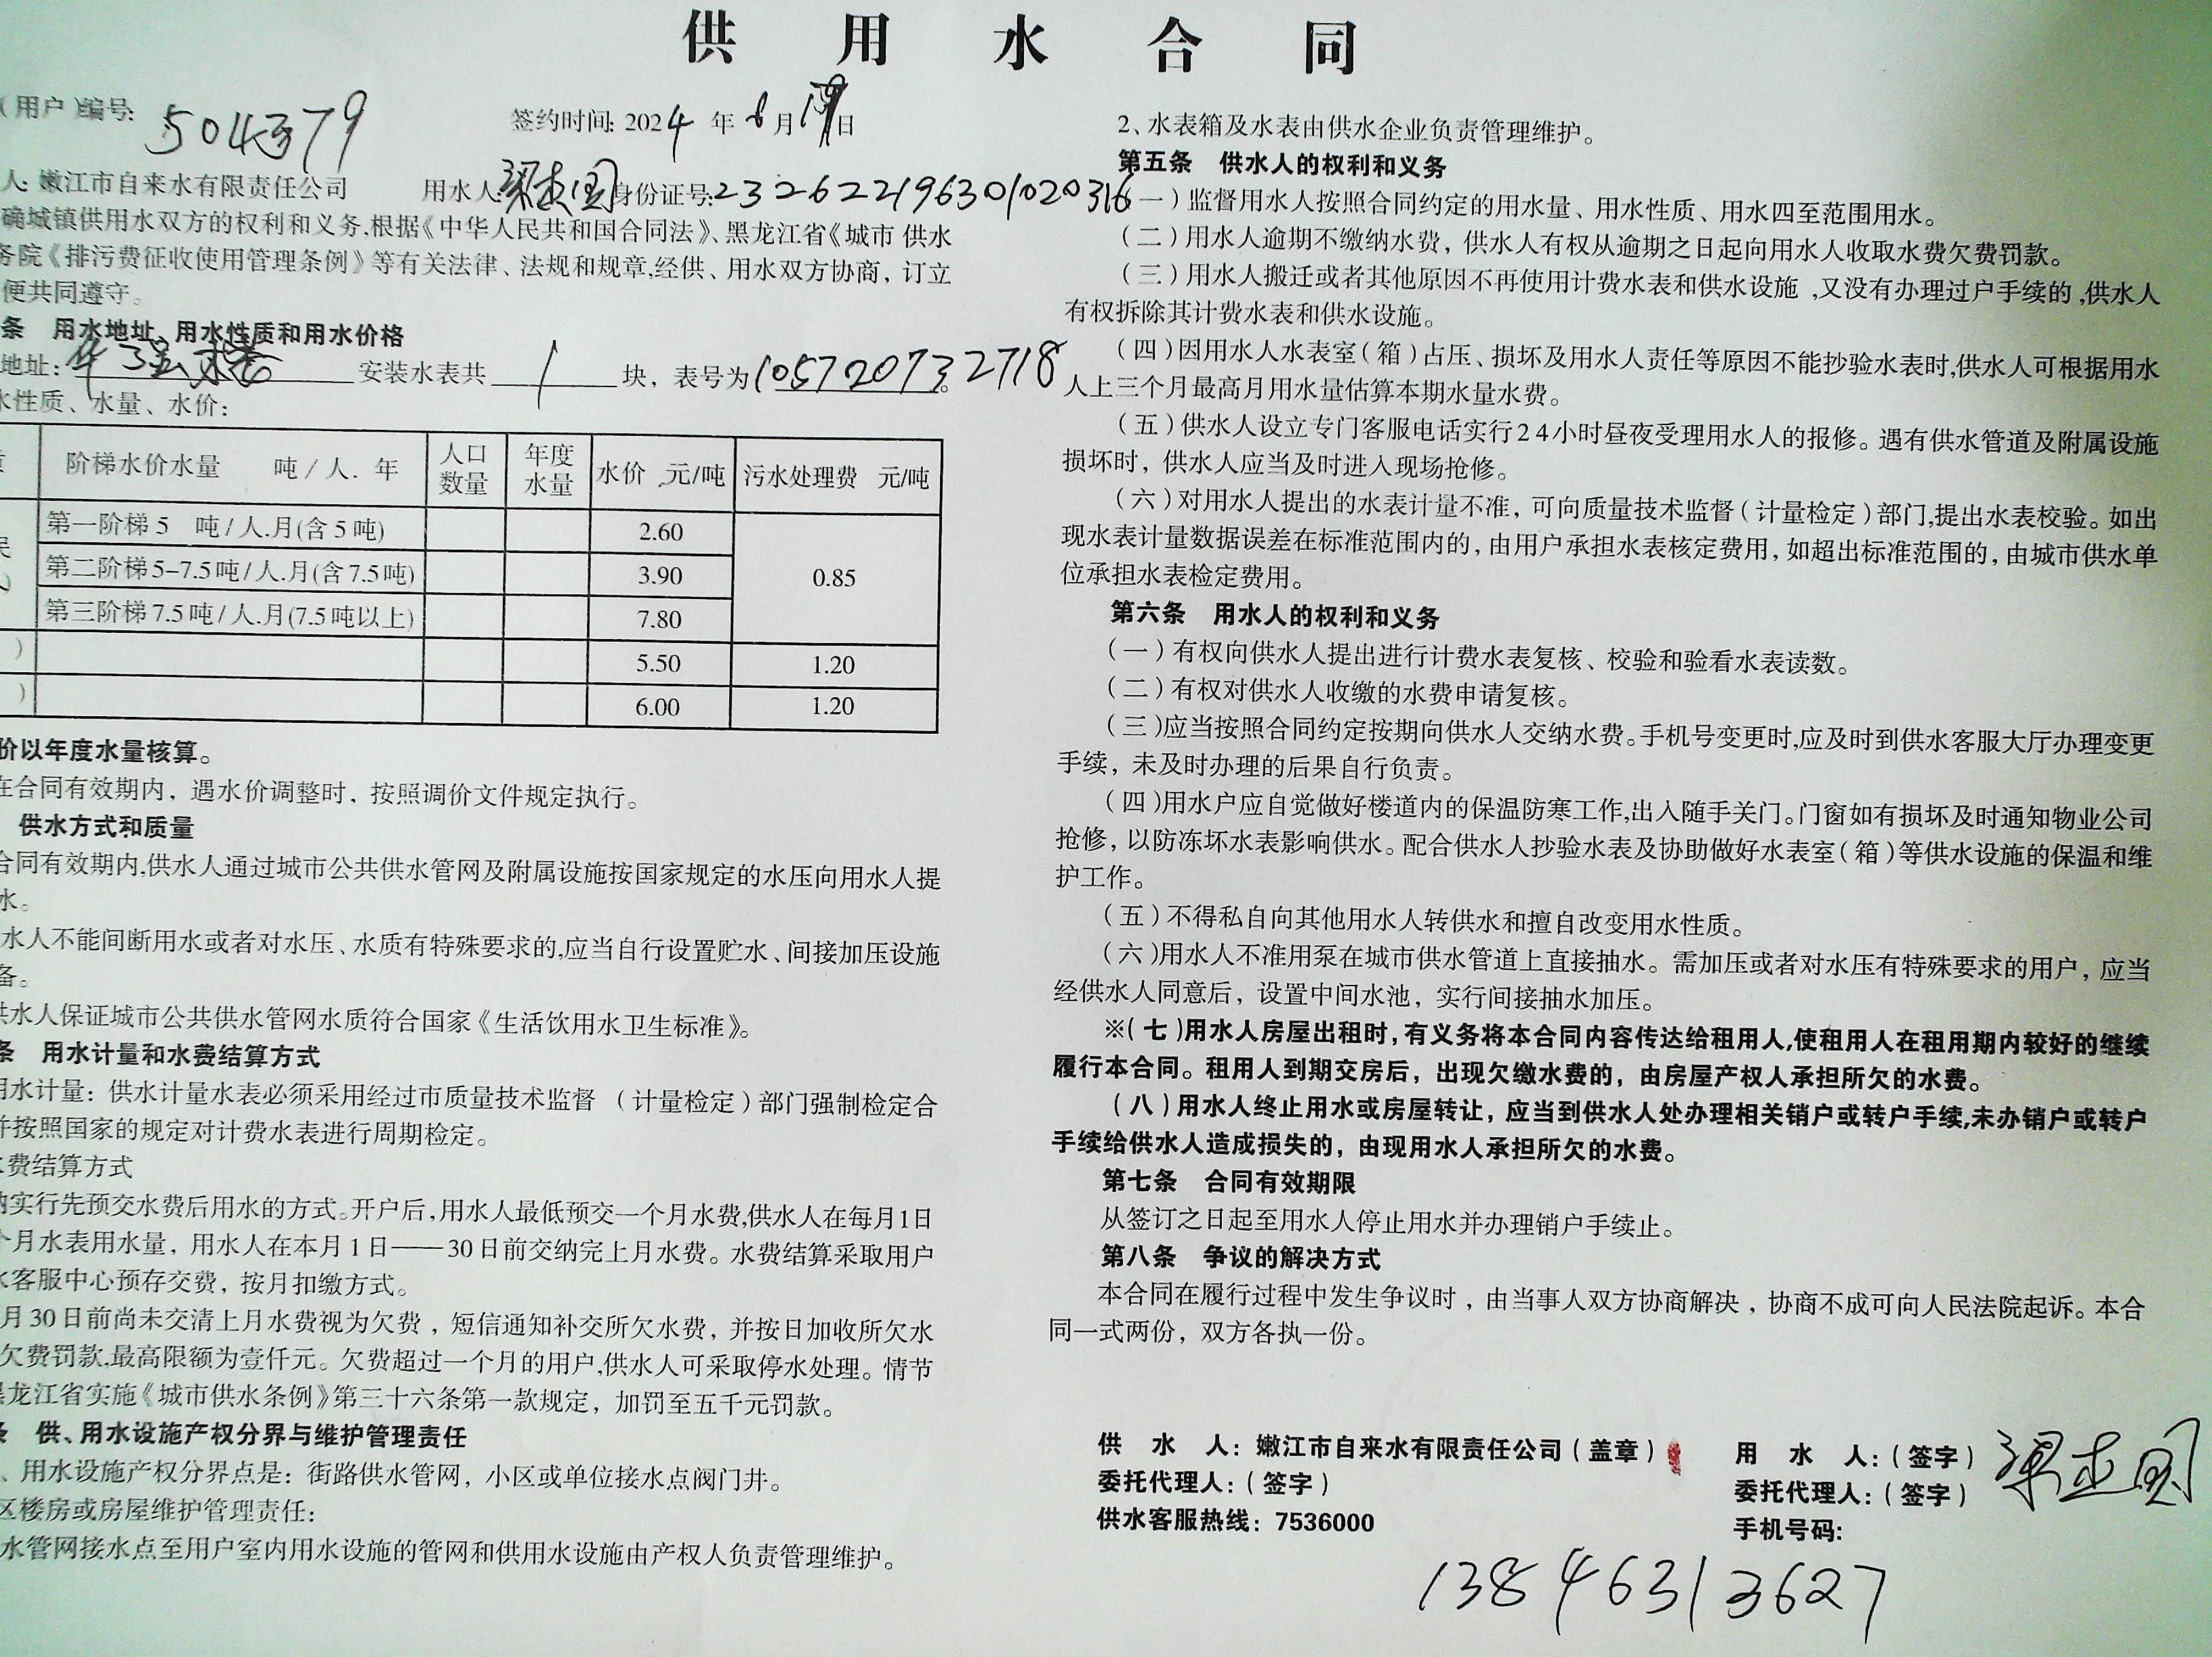 供用水合同
(用户)编号: 504379
签约时间: 2024年6月19日
人: 嫩江市自来水有限责任公司 用水人: 梁志国 身份证号: 232622196301020316
确城镇供用水双方的权利和义务,根据《中华人民共和国合同法》、黑龙江省《城市 供水
务院《排污费征收使用管理条例》等有关法律、法规和规章,经供、用水双方协商，订立
便共同遵守。
条 用水地址、用水性质和用水价格
地址: 华 安装水表共 1 块，表号为 105720732718。
水性质、水量、水价:
阶梯水价水量 吨/人.年 人口数量 年度水量 水价 元/吨 污水处理费 元/吨
第一阶梯5 吨/人.月(含5吨) 2.60 0.85
第二阶梯5-7.5吨/人.月(含7.5吨) 3.90
第三阶梯7.5吨/人.月(7.5吨以上) 7.80
) 5.50 1.20
) 6.00 1.20
价以年度水量核算。
在合同有效期内，遇水价调整时，按照调价文件规定执行。
供水方式和质量
合同有效期内,供水人通过城市公共供水管网及附属设施按国家规定的水压向用水人提
水。
水人不能间断用水或者对水压、水质有特殊要求的,应当自行设置贮水、间接加压设施
备。
供水人保证城市公共供水管网水质符合国家《生活饮用水卫生标准》。
条 用水计量和水费结算方式
用水计量: 供水计量水表必须采用经过市质量技术监督 (计量检定)部门强制检定合
并按照国家的规定对计费水表进行周期检定。
费结算方式
纳实行先预交水费后用水的方式。开户后,用水人最低预交一个月水费,供水人在每月1日
个月水表用水量，用水人在本月1日——30日前交纳完上月水费。水费结算采取用户
水客服中心预存交费，按月扣缴方式。
月30日前尚未交清上月水费视为欠费，短信通知补交所欠水费，并按日加收所欠水
欠费罚款,最高限额为壹仟元。欠费超过一个月的用户,供水人可采取停水处理。情节
黑龙江省实施《城市供水条例》第三十六条第一款规定，加罚至五千元罚款。
条 供、用水设施产权分界与维护管理责任
、用水设施产权分界点是: 街路供水管网，小区或单位接水点阀门井。
区楼房或房屋维护管理责任:
水管网接水点至用户室内用水设施的管网和供用水设施由产权人负责管理维护。
2、水表箱及水表由供水企业负责管理维护。
第五条 供水人的权利和义务
(一)监督用水人按照合同约定的用水量、用水性质、用水四至范围用水。
(二)用水人逾期不缴纳水费，供水人有权从逾期之日起向用水人收取水费欠费罚款。
(三)用水人搬迁或者其他原因不再使用计费水表和供水设施,又没有办理过户手续的,供水人
有权拆除其计费水表和供水设施。
(四)因用水人水表室(箱)占压、损坏及用水人责任等原因不能抄验水表时,供水人可根据用水
人上三个月最高月用水量估算本期水量水费。
(五)供水人设立专门客服电话实行24小时昼夜受理用水人的报修。遇有供水管道及附属设施
损坏时，供水人应当及时进入现场抢修。
(六)对用水人提出的水表计量不准，可向质量技术监督(计量检定)部门,提出水表校验。如出
现水表计量数据误差在标准范围内的，由用户承担水表核定费用，如超出标准范围的，由城市供水单
位承担水表检定费用。
第六条 用水人的权利和义务
(一)有权向供水人提出进行计费水表复核、校验和验看水表读数。
(二)有权对供水人收缴的水费申请复核。
(三)应当按照合同约定按期向供水人交纳水费。手机号变更时,应及时到供水客服大厅办理变更
手续，未及时办理的后果自行负责。
(四)用水户应自觉做好楼道内的保温防寒工作,出入随手关门。门窗如有损坏及时通知物业公司
抢修，以防冻坏水表影响供水。配合供水人抄验水表及协助做好水表室(箱)等供水设施的保温和维
护工作。
(五)不得私自向其他用水人转供水和擅自改变用水性质。
(六)用水人不准用泵在城市供水管道上直接抽水。需加压或者对水压有特殊要求的用户，应当
经供水人同意后，设置中间水池，实行间接抽水加压。
※(七)用水人房屋出租时，有义务将本合同内容传达给租用人,使租用人在租用期内较好的继续
履行本合同。租用人到期交房后，出现欠缴水费的，由房屋产权人承担所欠的水费。
(八)用水人终止用水或房屋转让，应当到供水人处办理相关销户或转户手续,未办销户或转户
手续给供水人造成损失的，由现用水人承担所欠的水费。
第七条 合同有效期限
从签订之日起至用水人停止用水并办理销户手续止。
第八条 争议的解决方式
本合同在履行过程中发生争议时，由当事人双方协商解决，协商不成可向人民法院起诉。本合
同一式两份，双方各执一份。
供水人: 嫩江市自来水有限责任公司(盖章)
委托代理人: (签字)
供水客服热线: 7536000
用水人: (签字) 梁志国
委托代理人: (签字)
手机号码:
13846313627